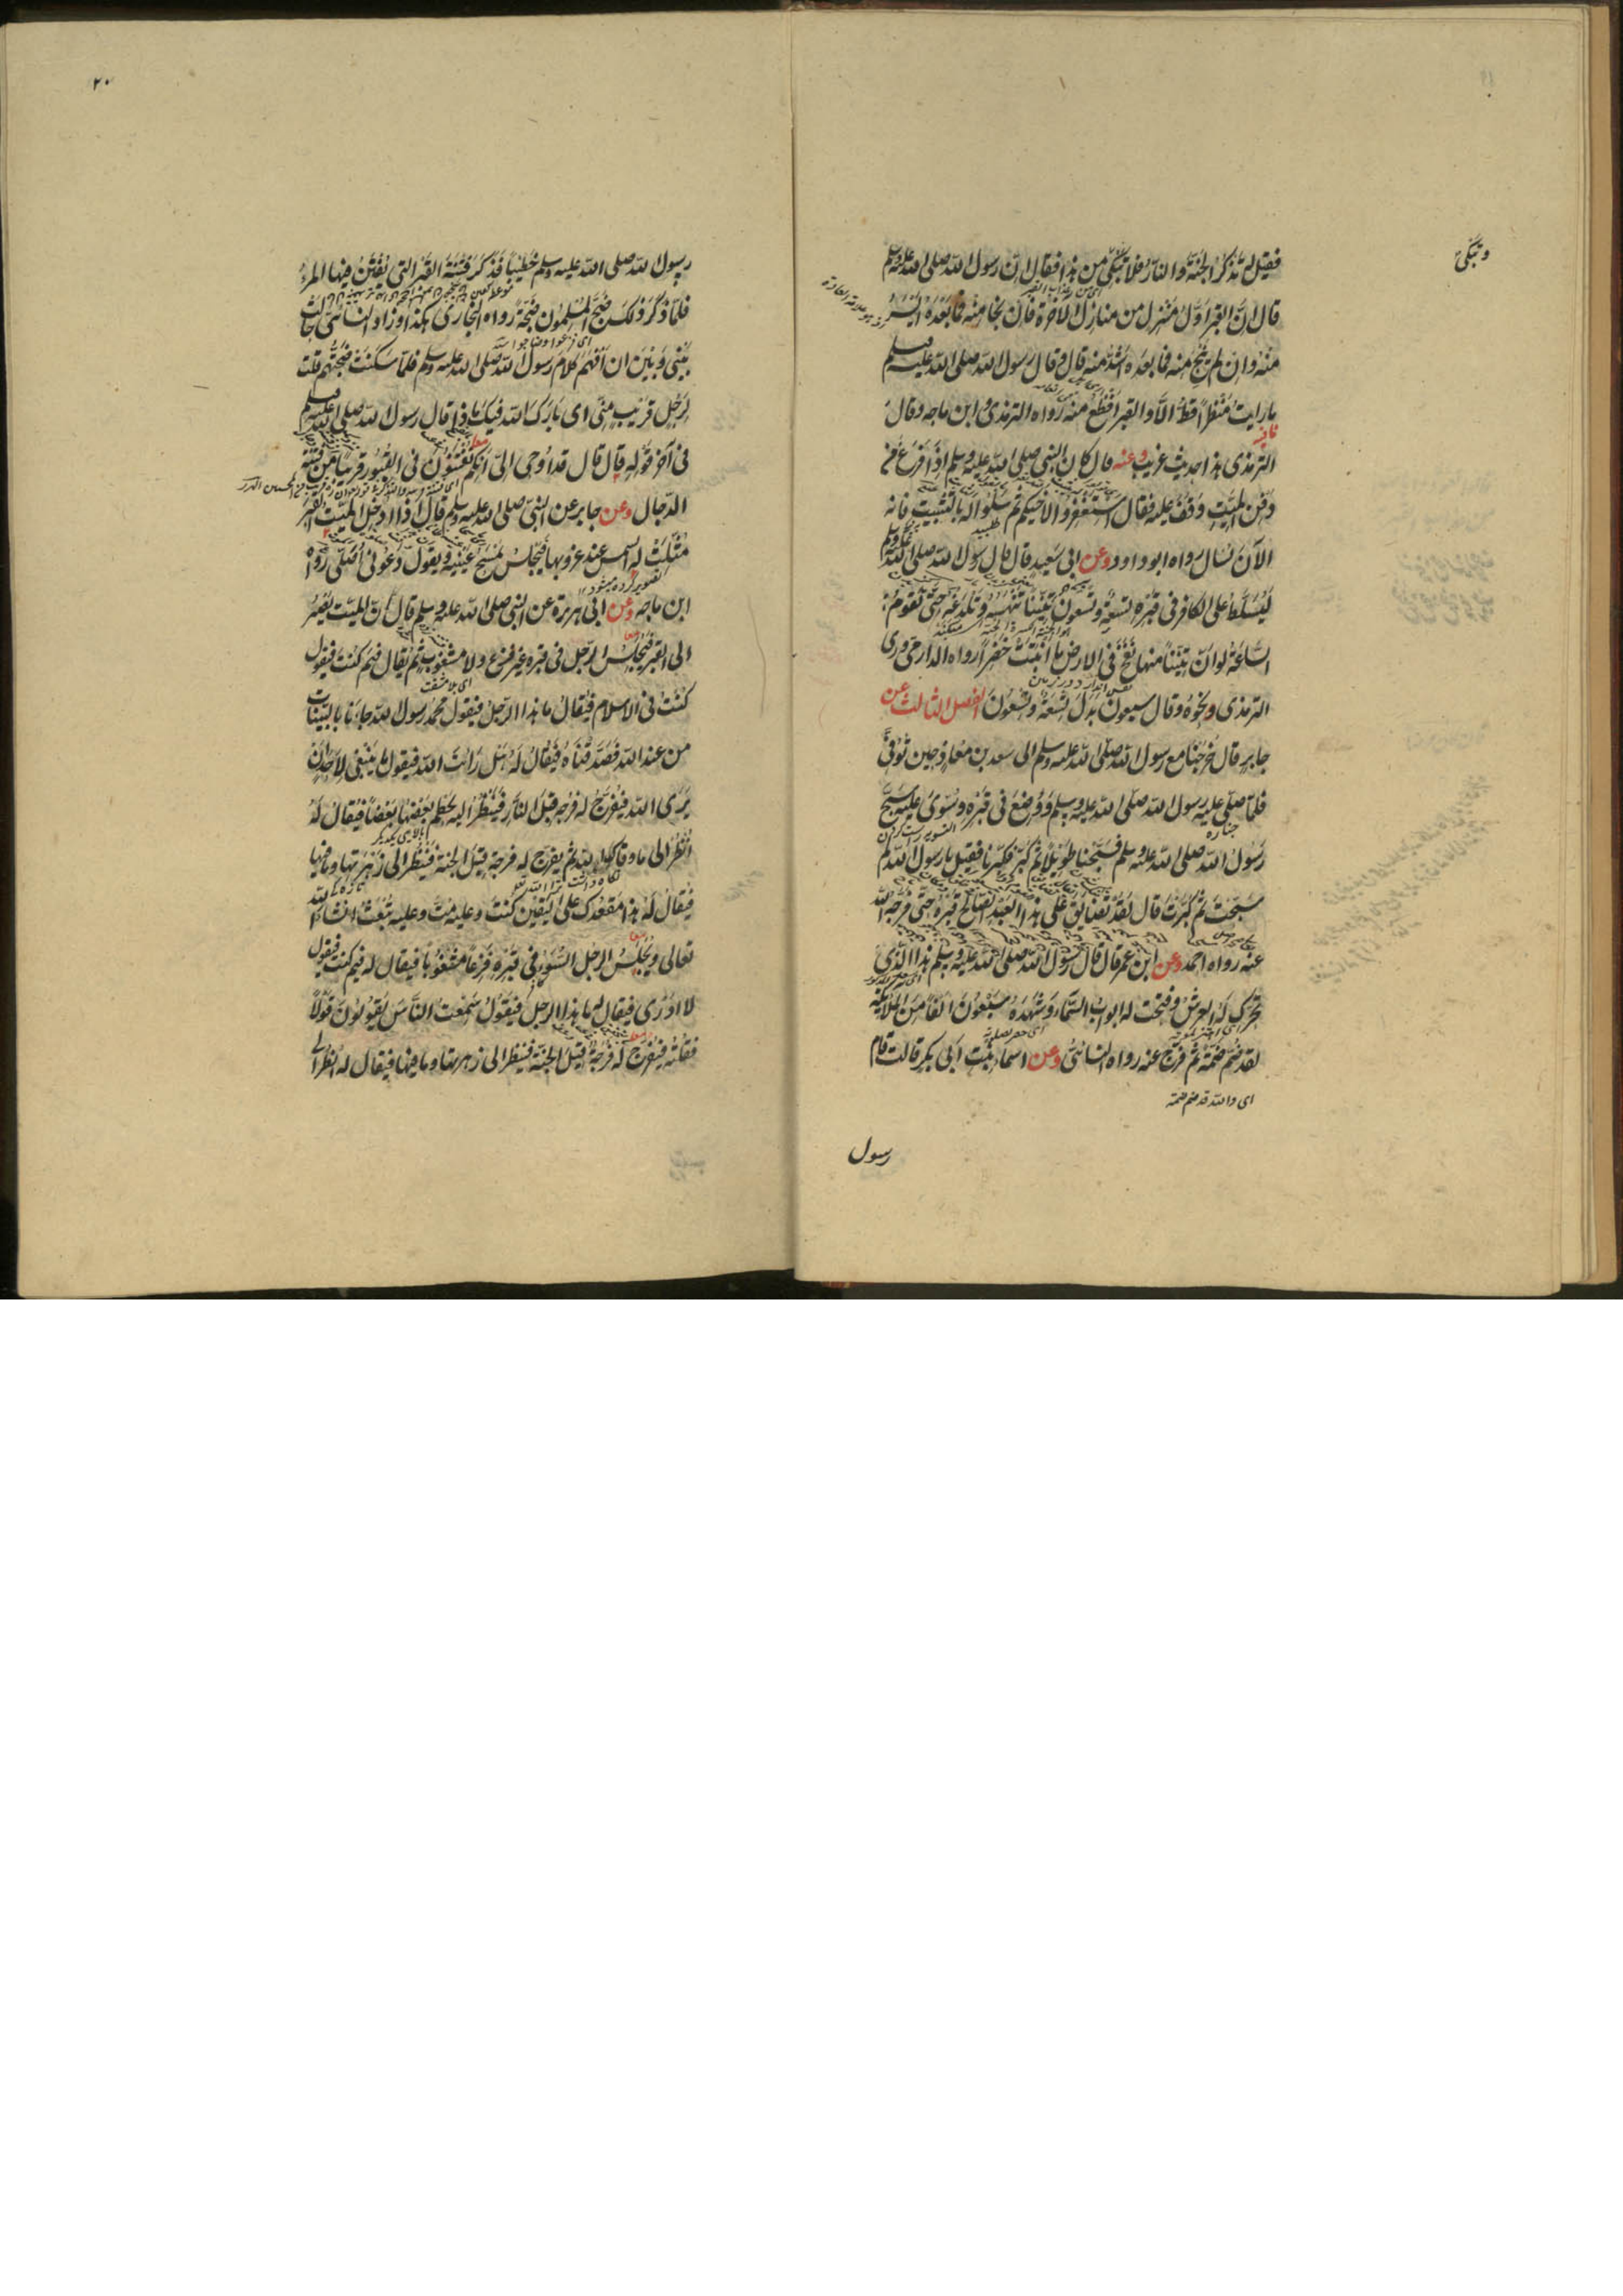 وتبكى
فقيل له تذكر الجنة والنار فلا تبكى وتبكى من هذا فقال ان رسول الله صلى الله عليه وسلم
قال ان القبر اول منزل من منازل الآخرة فان نجا منه فما بعده ايسر
منه وان لم ينج منه فما بعده اشد منه قال وقال رسول الله صلى الله عليه وسلم
ما رايت منظرا قط الا والقبر افظع منه رواه الترمذى وابن ماجه وقال
الترمذى هذا حديث غريب وعنه قال كان النبى صلى الله عليه وسلم اذا فرغ من
دفن الميت وقف عليه فقال استغفروا لاخيكم ثم سلوا له بالتثبيت فانه
الآن يسأل رواه ابو داود وعن ابى سعيد قال قال رسول الله صلى الله عليه وسلم
ليسلط على الكافر فى قبره تسعة وتسعون تنينا تنهسه وتلدغه حتى تقوم
الساعة لو ان تنينا منها نفخ فى الارض ما انبتت خضرا رواه الدارمى وروى
الترمذى نحوه وقال سبعون بدل تسعة وتسعون الفصل الثالث عن
جابر قال خرجنا مع رسول الله صلى الله عليه وسلم الى سعد بن معاذ حين توفى
فلما صلى عليه رسول الله صلى الله عليه وسلم ووضع فى قبره وسوى عليه سبح
رسول الله صلى الله عليه وسلم فسبحنا طويلا ثم كبر فكبرنا فقيل يا رسول الله لم
سبحت ثم كبرت قال لقد تضايق على هذا العبد الصالح قبره حتى فرجه الله
عنه رواه احمد وعن ابن عمر قال قال رسول الله صلى الله عليه وسلم هذا الذى
تحرك له العرش وفتحت له ابواب السماء وشهده سبعون الفا من الملائكة
لقد ضم ضمة ثم فرج عنه رواه النسائى وعن اسماء بنت ابى بكر قالت قام
اى والله قد ضم ضمة
رسول
٢٠
رسول الله صلى الله عليه وسلم خطيبا فذكر فتنة القبر التى يفتن فيها المرء
فلما ذكر ذلك ضج المسلمون ضجة رواه البخارى هكذا وزاد النسائى حالت
بينى وبين ان افهم كلام رسول الله صلى الله عليه وسلم فلما سكنت ضجتهم قلت
لرجل قريب منى اى بارك الله فيك ماذا قال رسول الله صلى الله عليه وسلم
فى آخر قوله قال قال قد اوحى الى انكم تفتنون فى القبور قريبا من فتنة
الدجال وعن جابر عن النبى صلى الله عليه وسلم قال اذا ادخل الميت القبر
مثلت له الشمس عند غروبها فيجلس يمسح عينيه ويقول دعونى اصلى رواه
ابن ماجه وعن ابى هريرة عن النبى صلى الله عليه وسلم قال ان الميت يصير
الى القبر فيجلس الرجل فى قبره غير فزع ولا مشغوب ثم يقال فيم كنت فيقول
كنت فى الاسلام فيقال ما هذا الرجل فيقول محمد رسول الله جاءنا بالبينات
من عند الله فصدقناه فيقال له هل رايت الله فيقول ما ينبغى لاحد ان
يرى الله فيفرج له فرجة قبل النار فينظر اليه يحطم بعضها بعضا فيقال له
انظر الى ما وقاك الله ثم يفرج له فرجة قبل الجنة فينظر الى زهرتها وما فيها
فيقال له هذا مقعدك على اليقين كنت وعليه مت وعليه تبعث ان شاء الله
تعالى ويجلس الرجل السوء فى قبره فزعا مشغوبا فيقال له فيم كنت فيقول
لا ادرى فيقال له ما هذا الرجل فيقول سمعت الناس يقولون قولا
فقلته فيفرج له فرجة قبل الجنة فينظر الى زهرتها وما فيها فيقال له انظر الى